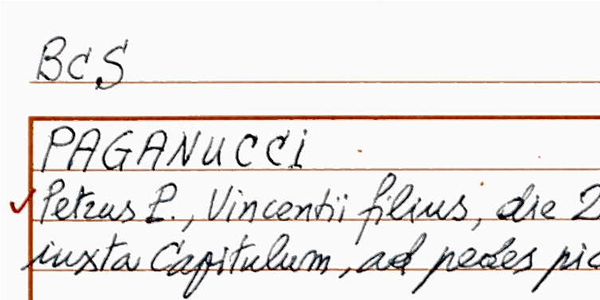 BCS
PAGANUCCI
Petrus P., Vincentii filius, die 2
iuxta Capitulum, ad pedes pic